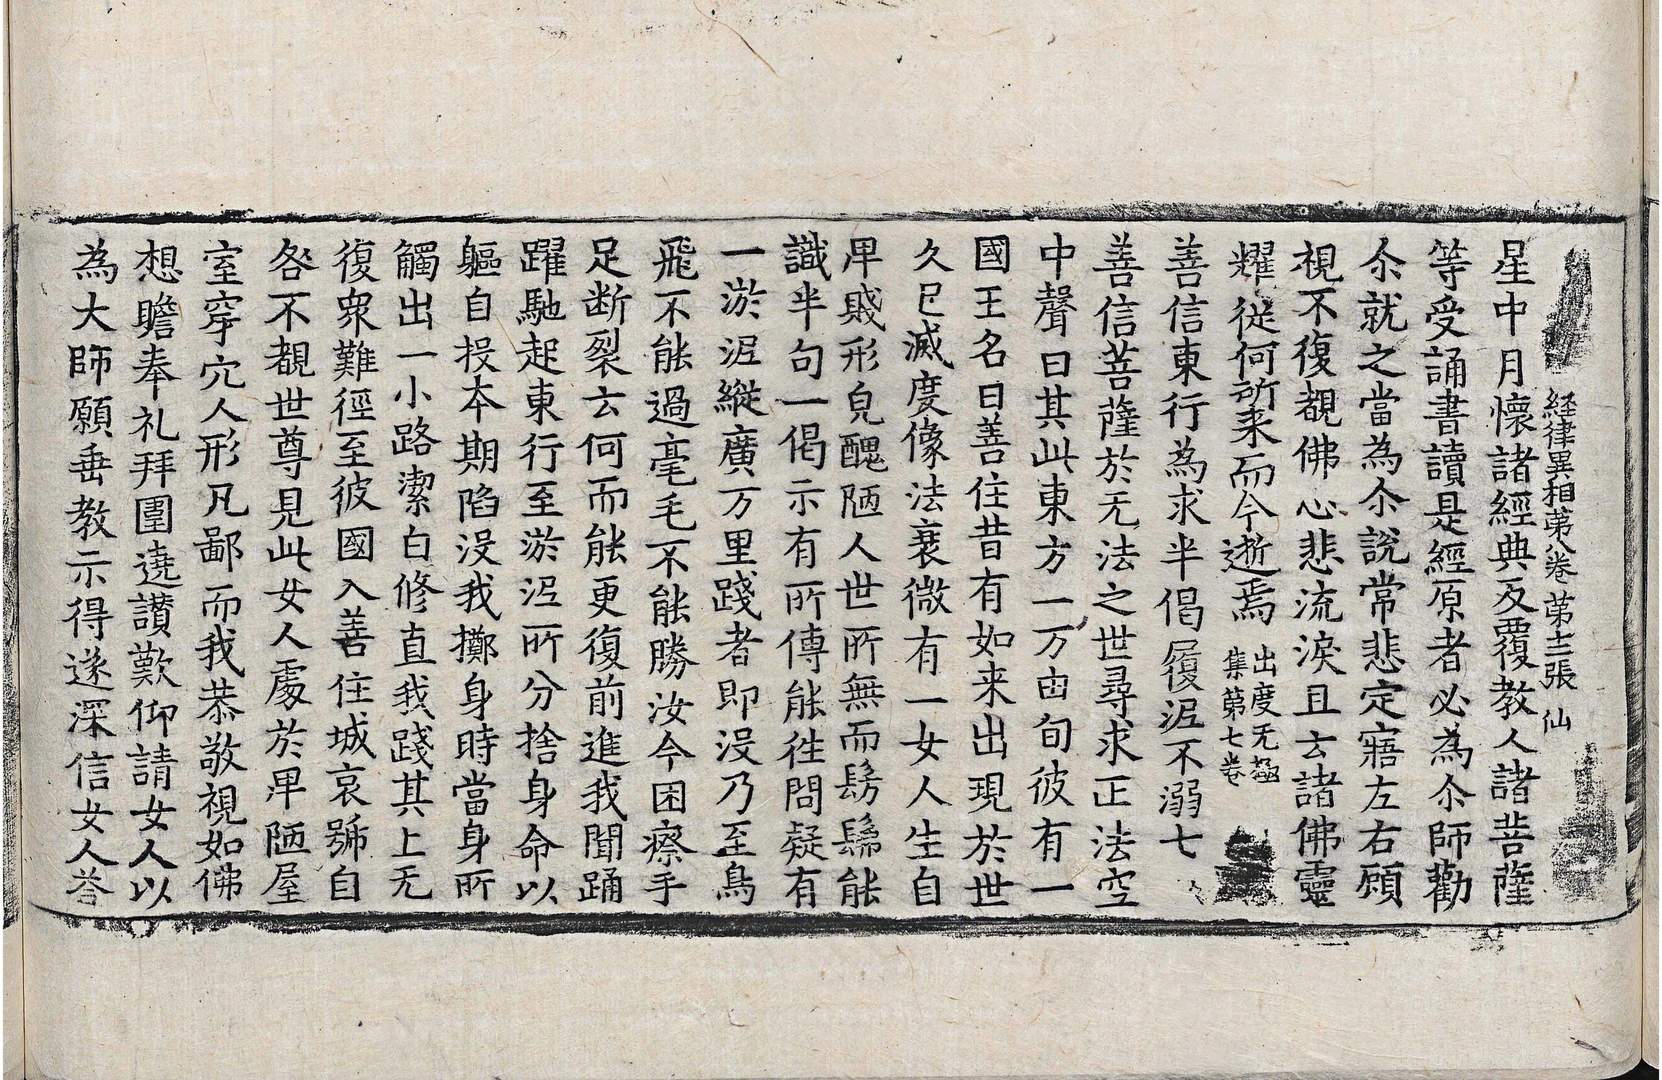 経律異相苐八卷 苐十三張 仙
星中月懷諸經典反覆教人諸菩薩
等受誦書讀是經原者必為尒師勸
尒就之當為尒說常悲定寤左右顧
視不復覩佛心悲流淚且云諸佛靈
耀從何所来而今逝焉 出度无極集第七卷
善信東行為求半偈履泥不溺七
善信菩薩於无法之世尋求正法空
中聲曰其此東方一万由旬彼有一
國王名曰善住昔有如来出現於世
久已滅度像法衰微有一女人生自
卑賎形皃醜陋人世所無而髣髴能
識半句一偈示有所傳能徃問疑有
一淤泥縱廣万里踐者即没乃至鳥
飛不能過毫毛不能勝汝今困瘵手
足断裂云何而能更復前進我聞踊
躍馳起東行至淤泥所分捨身命以
軀自投本期陷没我擲身時當身所
觸出一小路潔白修直我踐其上无
復衆難徑至彼國入善住城哀號自
咎不覩世尊見此女人處於卑陋屋
室穿穴人形凡鄙而我恭敬視如佛
想瞻奉礼拜圍遶讃歎仰請女人以
為大師願垂教示得遂深信女人荅